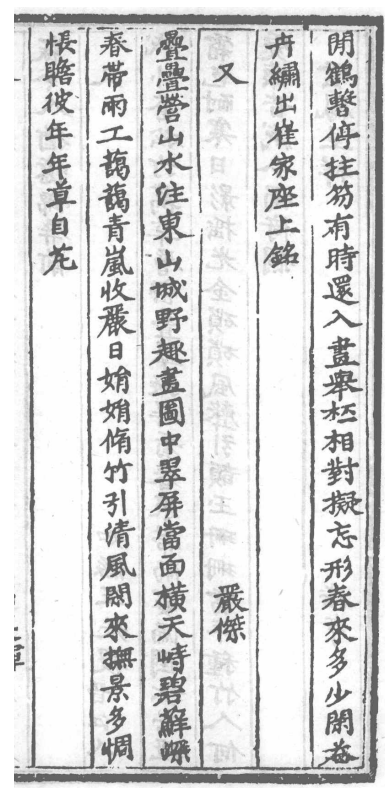 閑鶴暫停拄笏有時還入畫舉杯相對擬忘形春來多少閑花
卉繡出崔家座上銘
又　嚴傑
疊疊營山水注東山城野趣畫圖中翠屏當面橫天峙碧蘚嶸
春帶雨工藹藹青嵐收嚴日娟娟脩竹引清風閑來撫景多惆
悵瞻彼年年草自芃